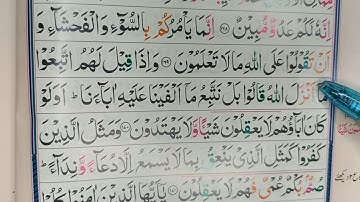 اِنَّهٗ لَكُمْ عَدُوٌّ مُّبِيْنٌ ۝١٦٨ اِنَّمَا يَاْمُرُكُمْ بِالسُّوْٓءِ وَالْفَحْشَآءِ وَ
اَنْ تَقُوْلُوْا عَلَى اللّٰهِ مَا لَا تَعْلَمُوْنَ ۝١٦٩ وَاِذَا قِيْلَ لَهُمُ اتَّبِعُوْا
مَآ اَنْزَلَ اللّٰهُ قَالُوْا بَلْ نَتَّبِعُ مَآ اَلْفَيْنَا عَلَيْهِ اٰبَآءَنَا ؕ اَوَلَوْ
كَانَ اٰبَآؤُهُمْ لَا يَعْقِلُوْنَ شَيْئًا وَّلَا يَهْتَدُوْنَ ۝١٧٠ وَمَثَلُ الَّذِيْنَ
كَفَرُوْا كَمَثَلِ الَّذِيْ يَنْعِقُ بِمَا لَا يَسْمَعُ اِلَّا دُعَآءً وَّنِدَآءً ؕ
صُمٌّۢ بُكْمٌ عُمْيٌ فَهُمْ لَا يَعْقِلُوْنَ ۝١٧١ يٰٓاَيُّهَا الَّذِيْنَ اٰمَنُوْا كُلُوْا